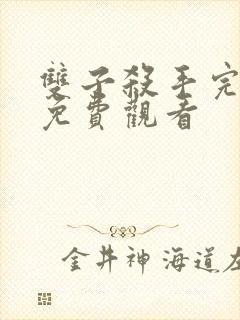 雙子殺手完
免費觀看
金井神海道左